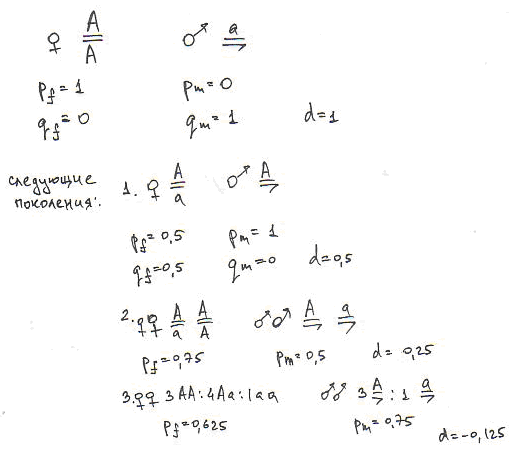 ♀ A/A ♂ a
pf=1 pm=0
qf=0 qm=1 d=1
следующие
поколения:
1. ♀ A/a ♂ A
pf=0,5 pm=1
qf=0,5 qm=0 d=0,5
2. ♀♀ A/a A/A ♂♂ A a
pf=0,75 pm=0,5 d=0,25
3. ♀♀ 3AA:4Aa:1aa ♂♂ 3 A : 1 a
pf=0,625 pm=0,75
d=-0,125